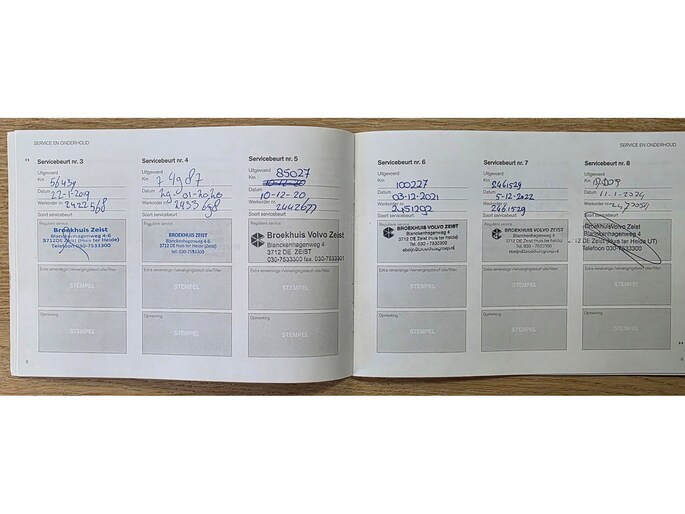 SERVICE EN ONDERHOUD
Servicebeurt nr. 3
Uitgevoerd
Km
Datum 22-1-2019
Werkorder nr. 2422568
Soort servicebeurt
Reguliere service
Broekhuis Zeist
Blanckenhagenweg 4-6
3712DE Zeist (Huis ter Heide)
Telefoon 030-7533300
STEMPEL
Opmerking
STEMPEL
8
Servicebeurt nr. 4
Uitgevoerd
Km 74987
Datum 29-01-2020
Werkorder nr. 2433698
Soort servicebeurt
Reguliere service
BROEKHUIS ZEIST
Blanckenhagenweg 4-6
3712 DE Huis ter Heide (Zeist)
tel. 030-7533300
STEMPEL
Opmerking
STEMPEL
Servicebeurt nr. 5
Uitgevoerd
85027
Km
Datum 10-12-20
Werkorder nr. 2442677
Soort servicebeurt
Reguliere service
Broekhuis Volvo Zeist
Blanckenhagenweg 4
3712 DE ZEIST
030-7533300 fax. 030-7533301
STEMPEL
Opmerking
STEMPEL
SERVICE EN ONDERHOUD
Servicebeurt nr. 6
Uitgevoerd
Km 100227
Datum 03-12-2021
Werkorder nr. 2451292
Soort servicebeurt
Reguliere service
BROEKHUIS VOLVO ZEIST
Blanckenhagenweg 4
3712 DE Zeist (Huis ter Heide)
Tel. 030 - 7533300
STEMPEL
Opmerking
STEMPEL
Servicebeurt nr. 7
Uitgevoerd
Km 2461529
Datum 5-12-2022
Werkorder nr. 2461529
Soort servicebeurt
Reguliere service
BROEKHUIS VOLVO ZEIST
Blanckenhagenweg 4
3712 DE Zeist (Huis ter Heide)
Tel. 030 - 7533300
STEMPEL
Opmerking
STEMPEL
Servicebeurt nr. 8
Uitgevoerd
Km
Datum 11-1-2024
Werkorder nr.
Soort servicebeurt
Reguliere service
Broekhuis Volvo Zeist
Blanckenhagenweg 4
12 DE Zeist (Huis ter Heide UT)
Telefoon 030-7533300
STEMPEL
Opmerking
STEMPEL